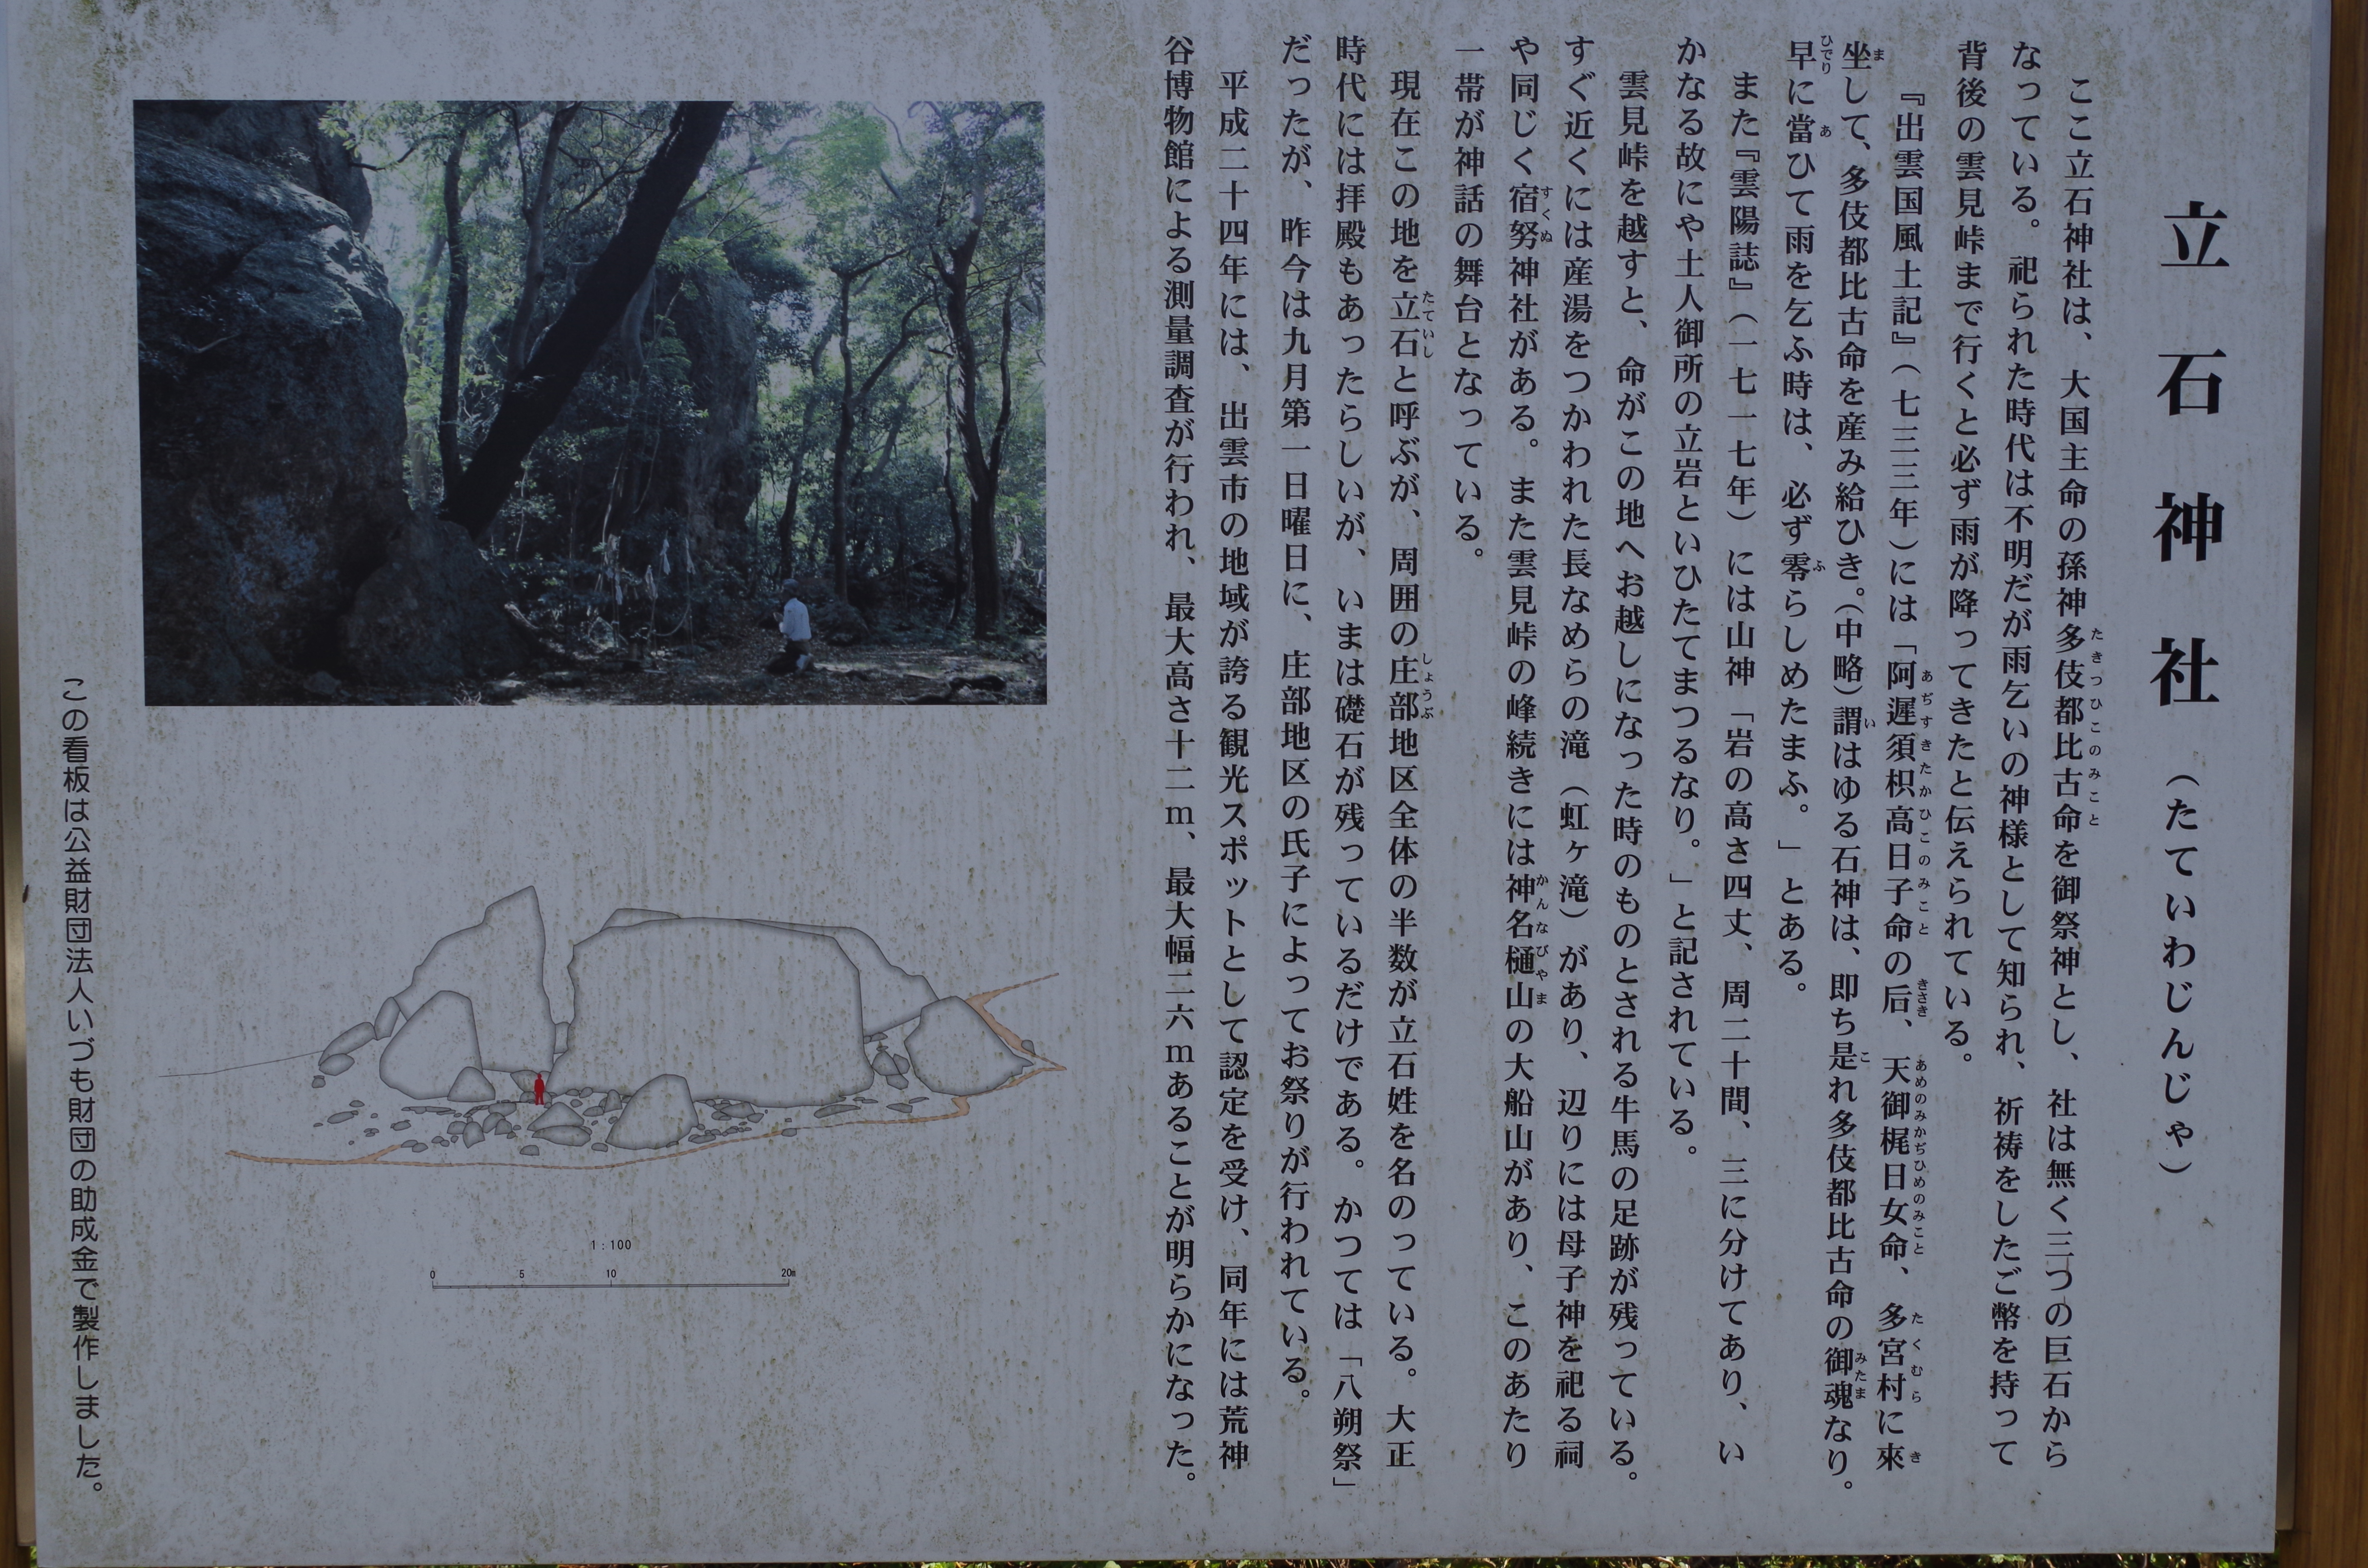 立石神社（たていわじんじゃ）
ここ立石神社は、大国主命の孫神多伎都比古命を御祭神とし、社は無く三つの巨石から
たきつひこのみこと
なっている。祀られた時代は不明だが雨乞いの神様として知られ、祈祷をしたご幣を持って
背後の雲見峠まで行くと必ず雨が降ってきたと伝えられている。
『出雲国風土記』（七三三年）には「阿遲須枳高日子命の后、天御梶日女命、多宮村に來
あぢすきたかひこのみこと きさき あめのみかぢひめのみこと たくむら き
坐して、多伎都比古命を産み給ひき。（中略）謂はゆる石神は、即ち是れ多伎都比古命の御魂なり。
ま い こ みたま
早に當ひて雨を乞ふ時は、必ず零らしめたまふ。」とある。
ひでり あ ふ
また『雲陽誌』（一七一七年）には山神「岩の高さ四丈、周二十間、三に分けてあり、い
かなる故にや土人御所の立岩といひたてまつるなり。」と記されている。
雲見峠を越すと、命がこの地へお越しになった時のものとされる牛馬の足跡が残っている。
すぐ近くには産湯をつかわれた長なめらの滝（虹ヶ滝）があり、辺りには母子神を祀る祠
や同じく宿努神社がある。また雲見峠の峰続きには神名樋山の大船山があり、このあたり
すくぬ かんなびやま
一帯が神話の舞台となっている。
現在この地を立石と呼ぶが、周囲の庄部地区全体の半数が立石姓を名のっている。大正
たていし しょうぶ
時代には拝殿もあったらしいが、いまは礎石が残っているだけである。かつては「八朔祭」
だったが、昨今は九月第一日曜日に、庄部地区の氏子によってお祭りが行われている。
平成二十四年には、出雲市の地域が誇る観光スポットとして認定を受け、同年には荒神
谷博物館による測量調査が行われ、最大高さ十二ｍ、最大幅二六ｍあることが明らかになった。
1：100
0 5 10 20m
この看板は公益財団法人いづも財団の助成金で製作しました。